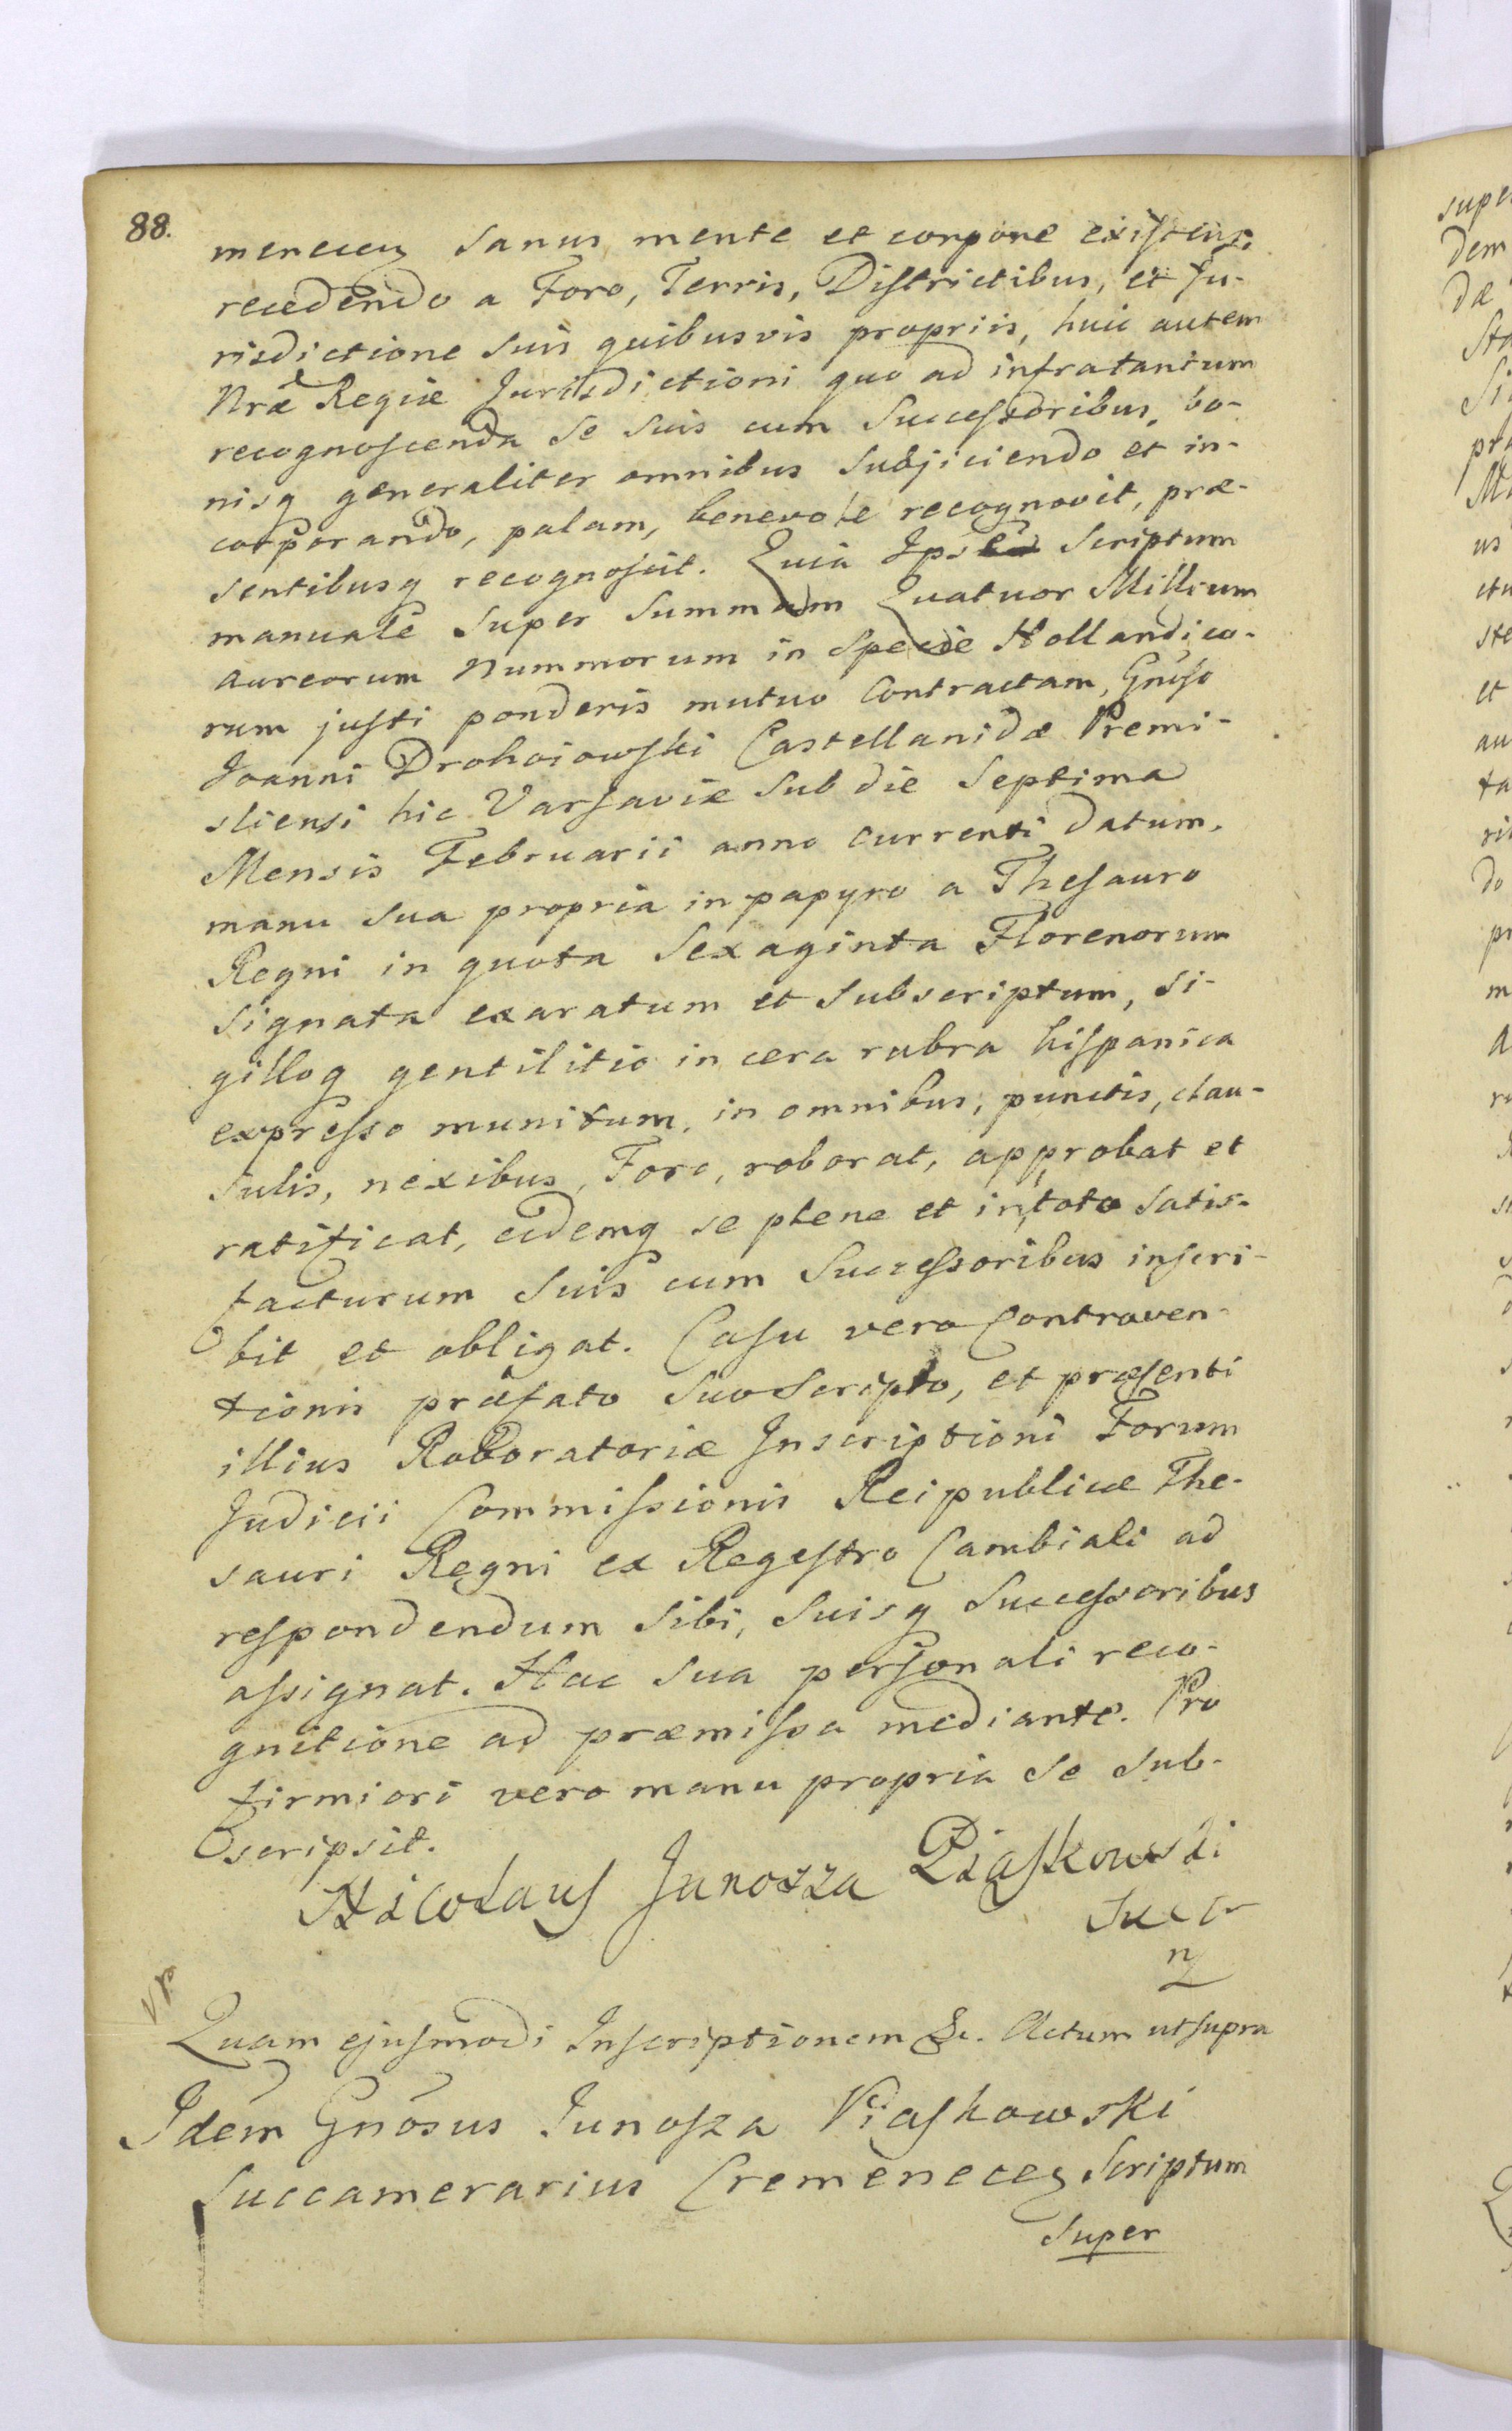 88.
menecen sanus mente et corpore existens,
recedendo a Foro, Terris, Districtibus, et Ju-
risdictione suis quibusvis propriis, huic autem
Nræ Regiæ Jurisdictioni quo ad infratantum
recognoscenda se suis cum Successoribus, bo-
nisq generaliter omnibus subjiciendo et in-
corporando, palam, benevole recognovit, præ-
sentibusq recognoscit. Quia Ipse Scriptum
manuale super summam Quatuor Millium
aureorum nummorum in specie Hollandico-
rum justi ponderis mutuo contractam, Gnoso
Joanni Drohoiowski Castellanidæ Premi-
sliensi hic Varsaviæ sub die septima
Mensis Februarii anno currenti datum,
manu sua propria in papyro a Thesauro
Regni in quota sexaginta Florenorum
signata exaratum et subscriptum, si-
gilloq gentilitio in cera rubra hispanica
expresso munitum, in omnibus, punctis, clau-
sulis, nexibus, Foro, roborat, approbat et
ratificat, eidemq se plene et in toto satis-
facturum suis cum Successoribus inscri-
bit et obligat. Casu vero Contraven-
tionis præfato suo Scripto, et præsenti
illius Roboratoriæ Inscriptioni Forum
Judicii Commissionis Reipublicæ The-
sauri Regni ex Regestro Cambiali ad
respondendum sibi, suisq Successoribus
assignat. Hac sua personali reco-
gnitione ad præmissa mediante. Pro
firmiori vero manu propria se sub-
scripsit.
Nicolaus Junosza Piaskowski
Quam ejusmodi Inscriptionem &c. Actum ut supra
Idem Gnosus Junosza Piaskowski
Succamerarius Cremenecen Scriptum
super